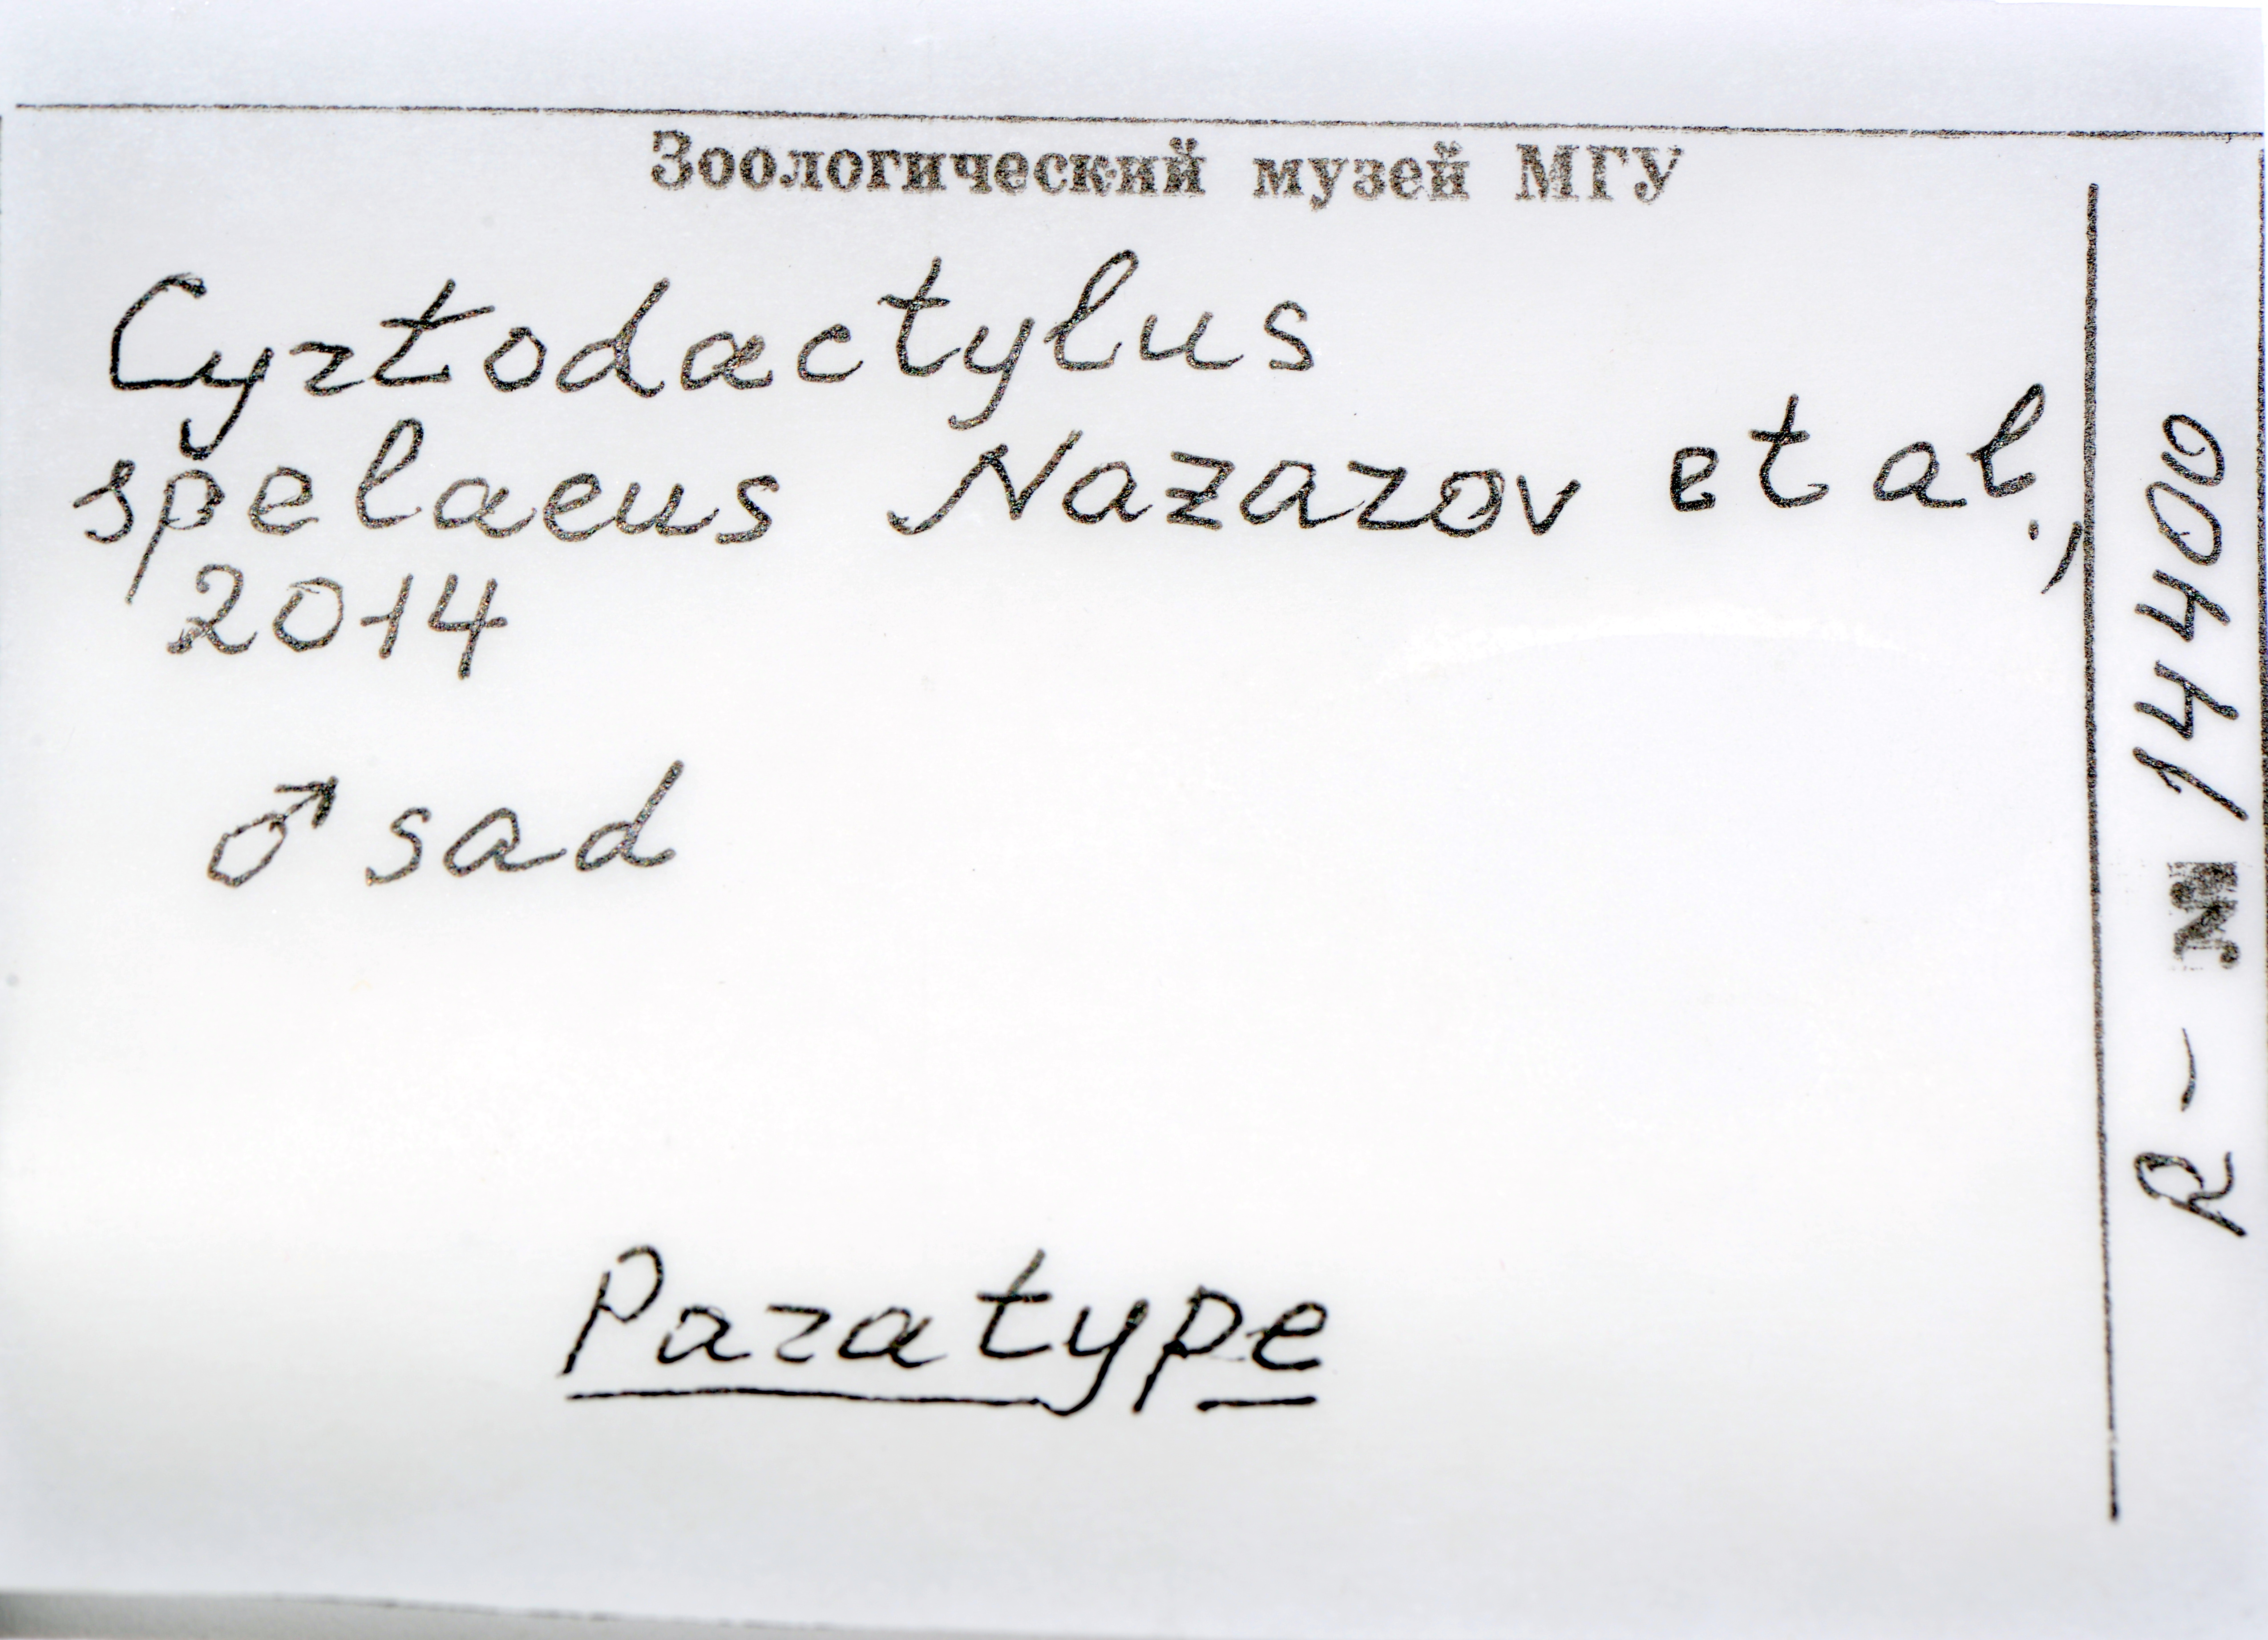 Зоологический музей МГУ
Cyrtodactylus
spelaeus Nazarov et al.,
2014
♂ sad
Paratype
R - № 14400